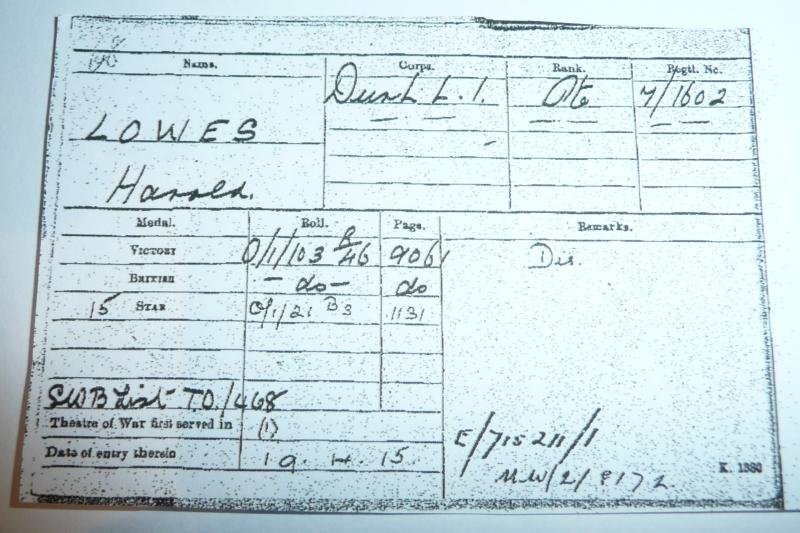 Name. Corps. Rank. Regtl. No.
Durh L.I. Pte 7/1602
LOWES
Harold.
Medal. Roll. Page. Remarks.
VICTORY O/1/103 B46 9061 Dis.
BRITISH - do - do
15 STAR O/1/21 B3 1131
SWB List TO/1468
Theatre of War first served in (1)
Date of entry therein 19.4.15.
E/715211/1
K. 1380